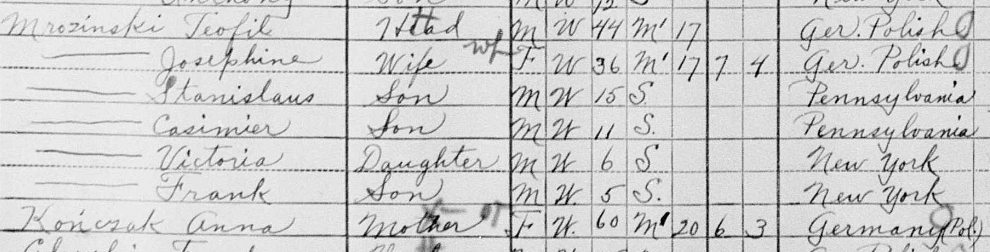 Mrozinski Teofil Head M W 44 M¹ 17 Ger. Polish
— Josephine Wife F W 36 M¹ 17 7 4 Ger. Polish
— Stanislaus Son M W. 15 S. Pennsylvania
— Casimier Son M W. 11 S. Pennsylvania
— Victoria Daughter M W. 6 S. New York
— Frank Son M W. 5 S. New York
Kończak Anna Mother F W. 60 M¹ 20 6 3 Germany (Pol.)